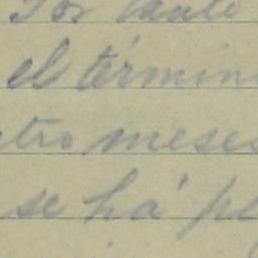 Por tanto
el términ
tro meses
se há pl